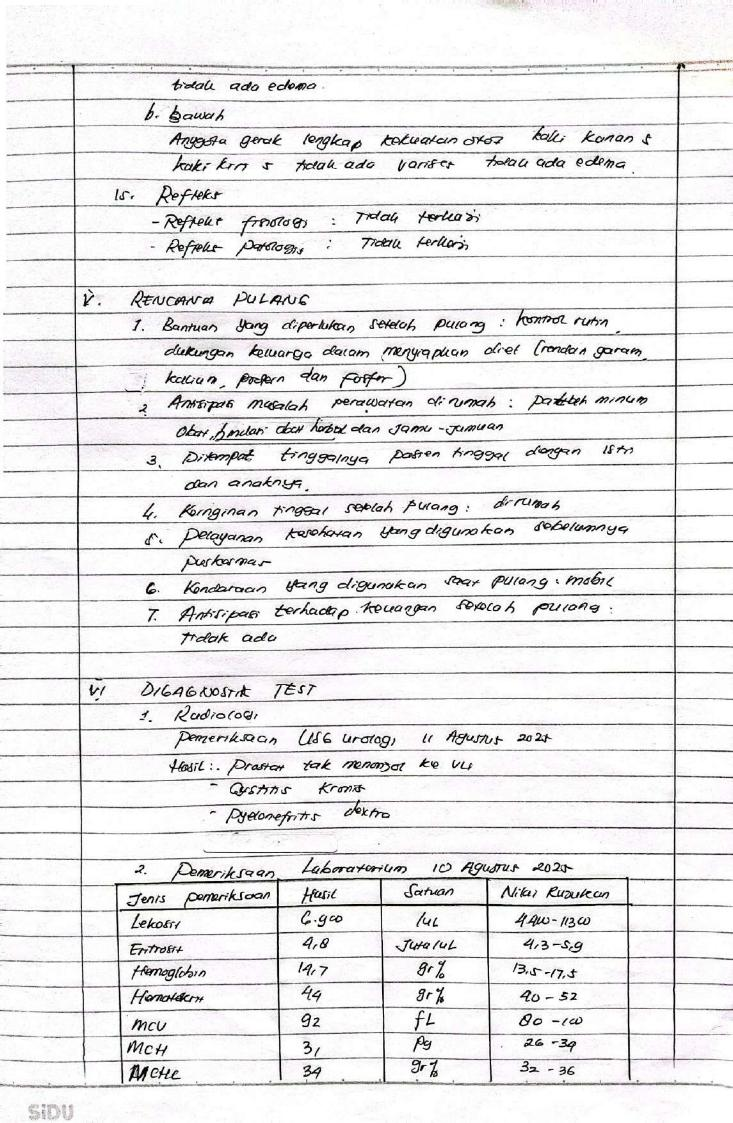 tidak ada edema.
b. bawah
Anggota gerak lengkap kekuatan otot kaki kanan 5
kaki kiri 5 tidak ada varises tidak ada edema.
15. Refleks
- Refleks fisiologi : Tidak terkaji
- Refleks patologis : Tidak terkaji
V. RENCANA PULANG
1. Bantuan yang diperlukan setelah pulang : kontrol rutin,
dukungan keluarga dalam menyiapkan diet (rendah garam,
kalium, protein dan fosfor)
2. Antisipasi masalah perawatan di rumah : patuh minum
obat, hindari obat herbal dan jamu-jamuan
3. Ditempat tinggalnya pasien tinggal dengan istri
dan anaknya.
4. Keinginan tinggal setelah pulang : dirumah
5. Pelayanan kesehatan yang digunakan sebelumnya
puskesmas
6. Kendaraan yang digunakan saat pulang : mobil
7. Antisipasi terhadap keuangan setelah pulang :
tidak ada
VI DIGAGNOSTIK TEST
1. Radiologi
Pemeriksaan USG urologi 11 Agustus 2025
Hasil : - Prostat tak menonjol ke VU
- Qystitis Kronis
- Pyelonefritis dextra
2. Pemeriksaan Laboratorium 10 Agustus 2025
Jenis pemeriksaan Hasil Satuan Nilai Rujukan
Lekosit 6.900 /uL 4400-11300
Eritrosit 4,8 Juta/uL 4,3-5,9
Hemoglobin 14,7 gr% 13,5-17,5
Hematokrit 44 gr% 40-52
MCV 92 fL 80-100
MCH 31 Pg 26-34
MCHC 34 gr% 32-36
SiDU